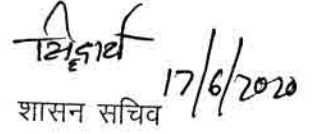 सिद्धार्थ
17/6/2020
शासन सचिव